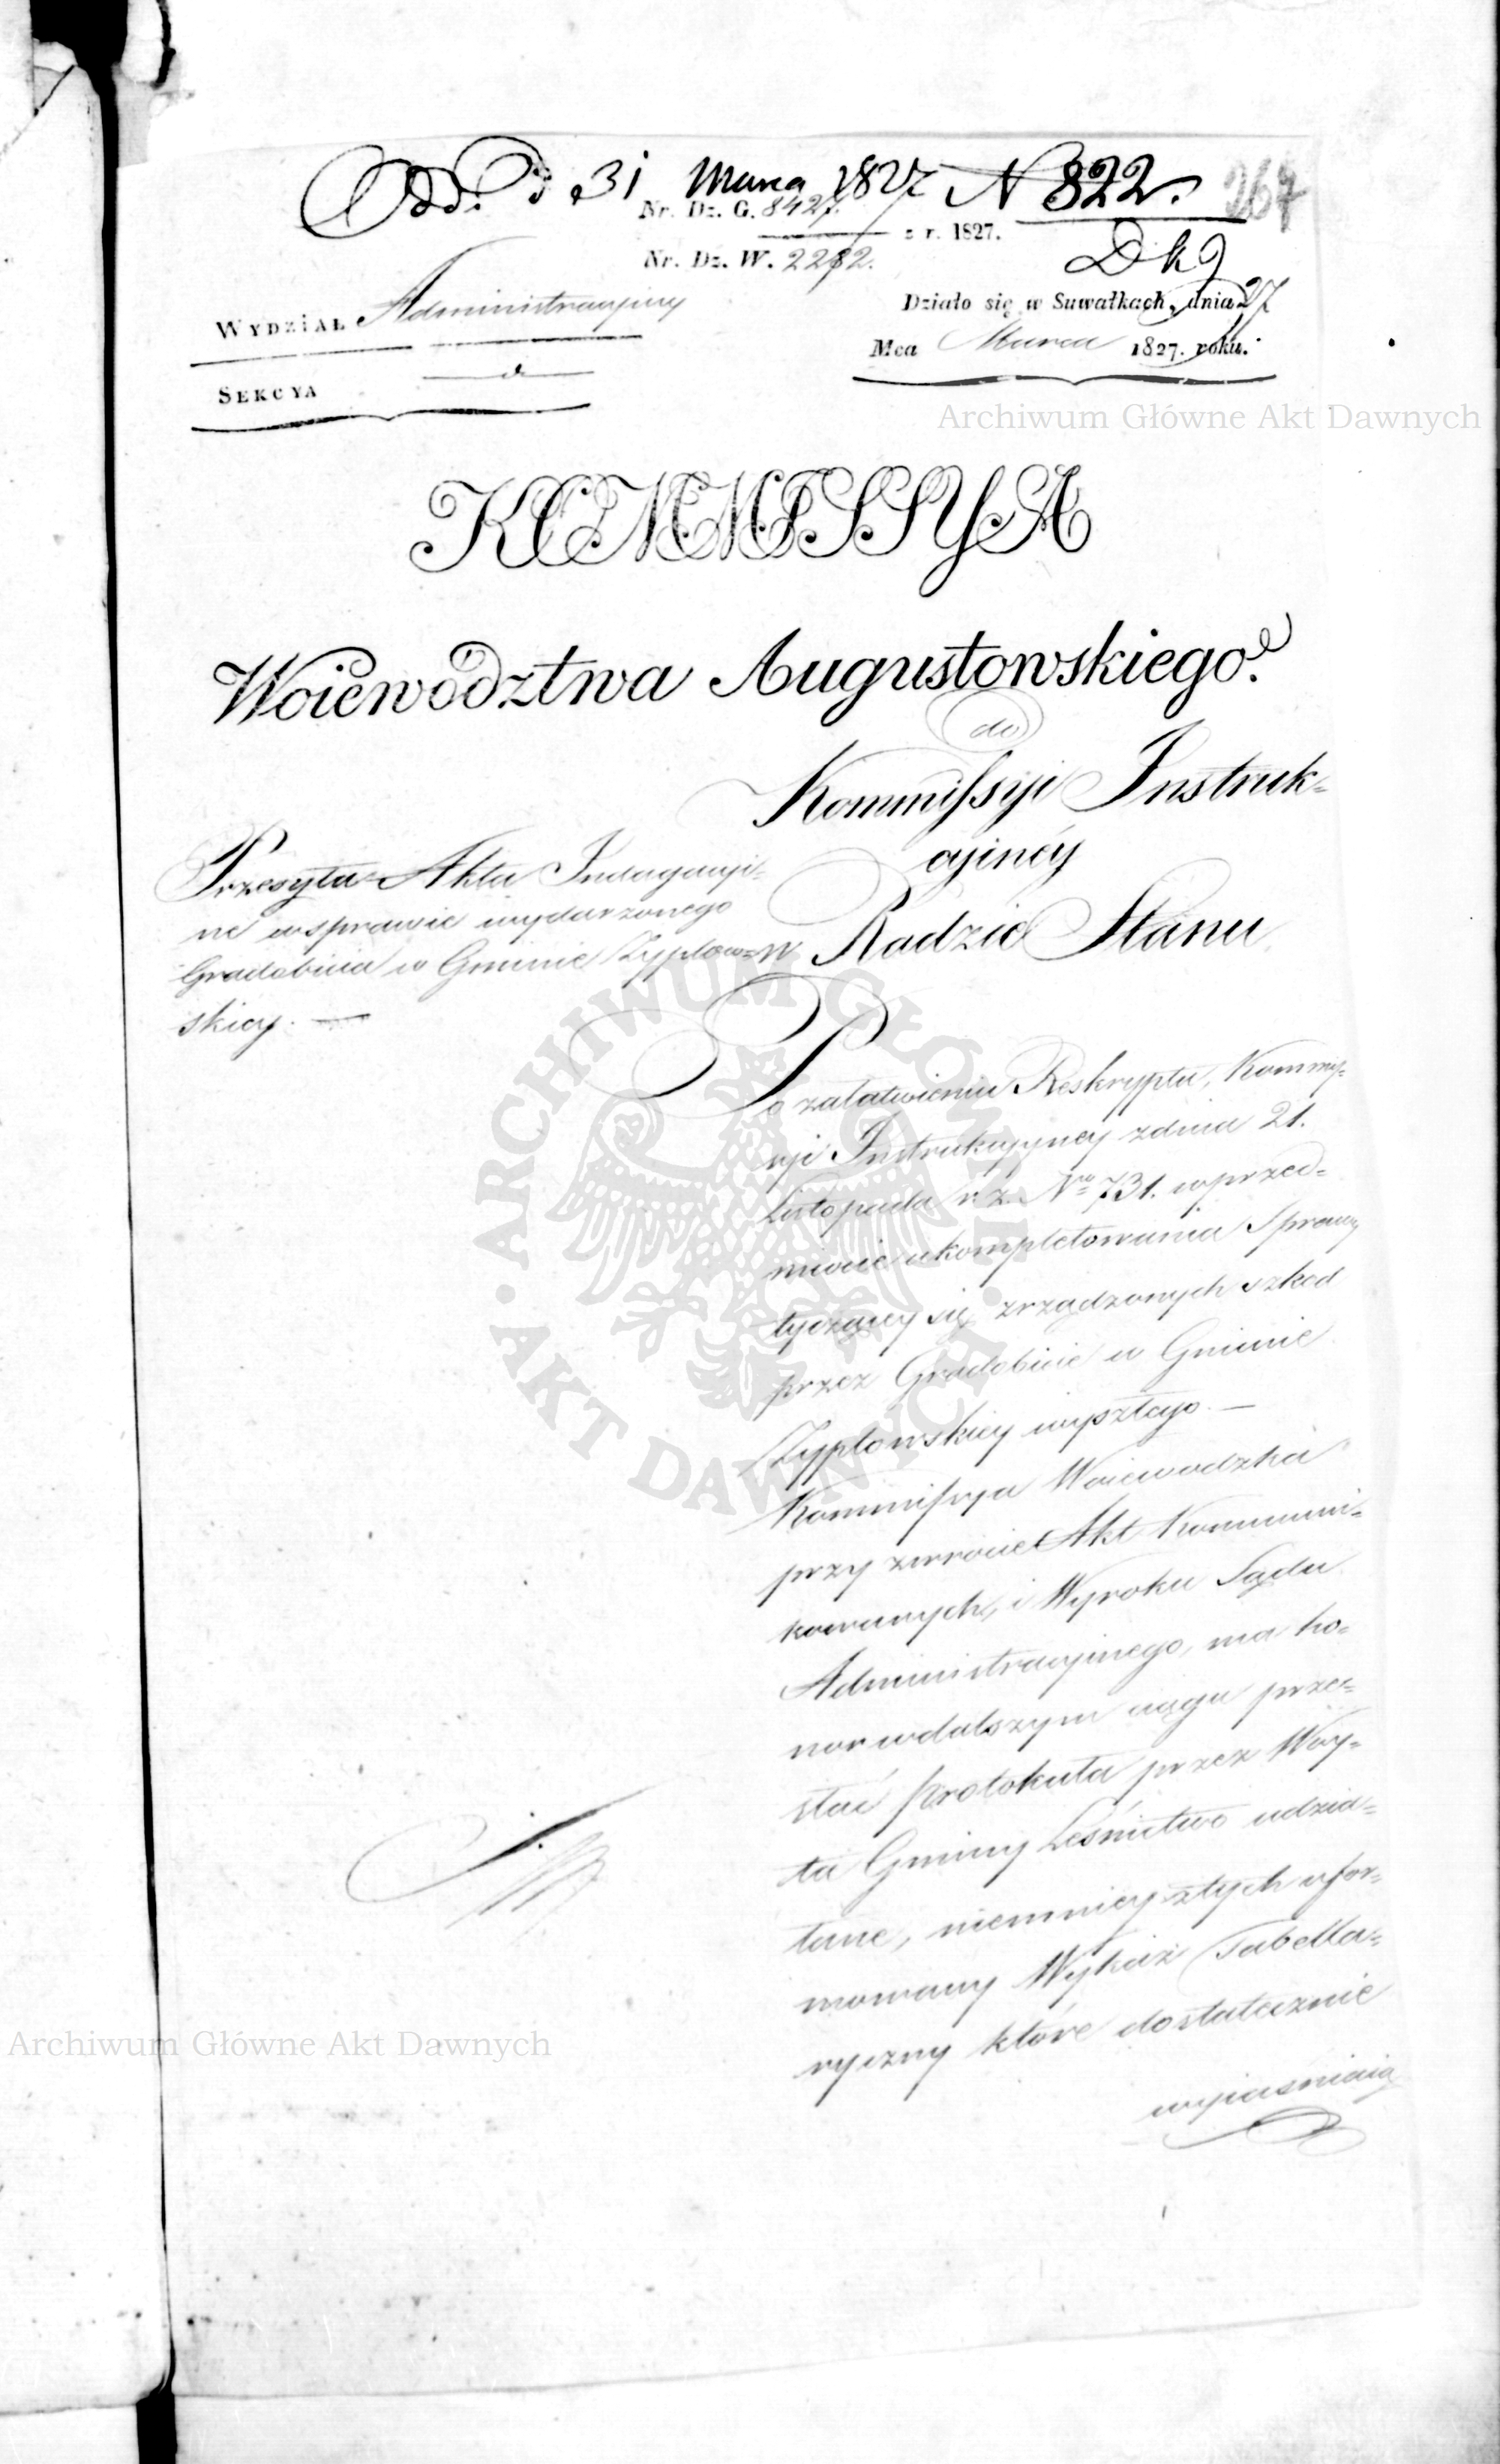 Odd. d 31 Marca 1827 N 822.
267
Nr. Dz. G. 8427.
z r. 1827.
Nr. Dz. W. 2282.
Dk
WYDZIAŁ Administracyiny
Działo się w Suwałkach, dnia 27
Mca Marca 1827. roku.
SEKCYA
Archiwum Główne Akt Dawnych
KOMMISSYA
Woiewództwa Augustowskiego.
do
Kommissyi Instruk=
cyinéy
w Radzie Stanu
Przesyła Akta Indagacyi=
ne w sprawie wydarzonego
Gradobicia w Gminie Zyplow=
skiey. —
ARCHIWUM GŁÓWNE AKT DAWNYCH
Po załatwieniu Reskryptu, Kommis=
syi Instrukcyyney z dnia 21.
Listopada r. z. Nro 731. w przed=
miocie ukompletowania Sprawy
tyczącey się zrządzonych szkod
przez Gradobicie w Gminie
Zyplowskiey wyszłego. —
Kommissya Woiewodzka
przy zwrocie Akt Kommuni=
kowanych, i Wyroku Sądu
Administracyinego, ma ho=
nor w dalszym ciągu prze=
słać Protokuła przez Woy=
ta Gminy Leśnictwo udzia=
łane, niemniey z tych ufor=
mowany Wykaz Tabella=
ryczny które dostatecznie
wyiasniaią
Archiwum Główne Akt Dawnych